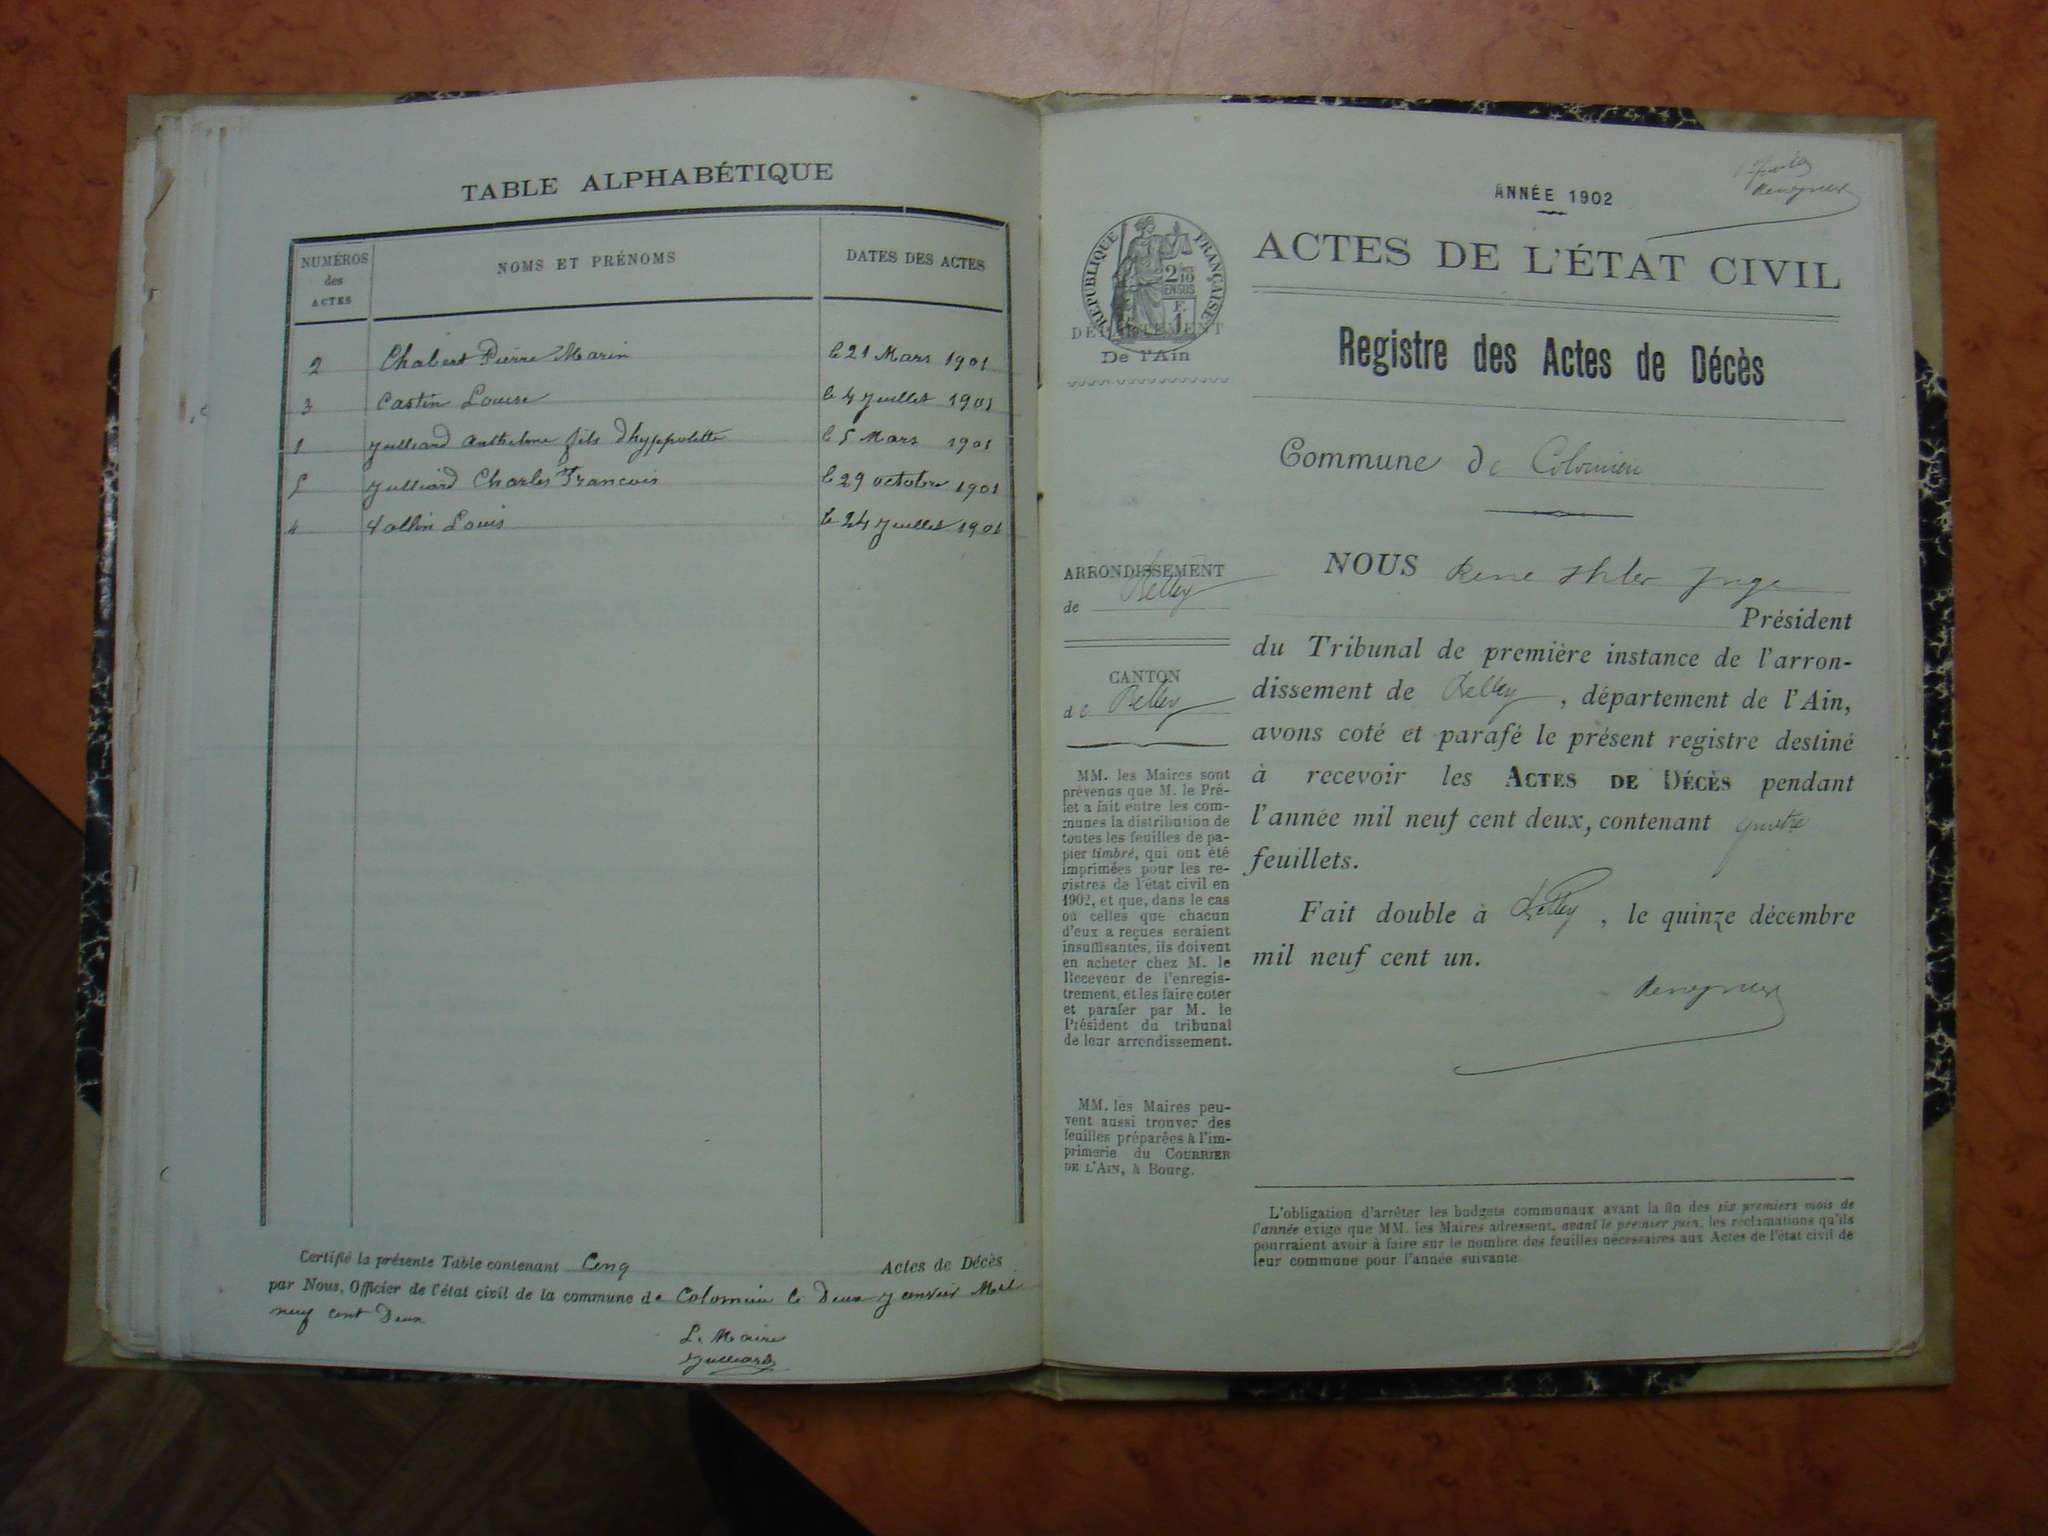 TABLE ALPHABÉTIQUE
NUMÉROS
des
ACTES
NOMS ET PRÉNOMS
DATES DES ACTES
2 Chabert Pierre Marin le 21 Mars 1901
3 Castin Louise le 4 Juillet 1901
1 Julliard Anthelme fils d'hyppolitte le 5 Mars 1901
5 Julliard Charles Francois le 29 octobre 1901
4 Vallin Louis le 24 Juillet 1901
Certifié la présente Table contenant Cinq Actes de Décès
par Nous, Officier de l'état civil de la commune de Colomieu le Deux Janvier Mil
neuf cent Deux
Le Maire
Julliard
ANNÉE 1902
RÉPUBLIQUE FRANÇAISE
ACTES DE L'ÉTAT CIVIL
DÉPARTEMENT
De l'Ain
Registre des Actes de Décès
Commune de Colomieu
ARRONDISSEMENT
de Belley
CANTON
de Belley
MM. les Maires sont
prévenus que M. le Pré-
fet a fait entre les com-
munes la distribution de
toutes les feuilles de pa-
pier timbré, qui ont été
imprimées pour les re-
gistres de l'état civil en
1902, et que, dans le cas
où celles que chacun
d'eux a reçues seraient
insuffisantes, ils doivent
en acheter chez M. le
Receveur de l'enregis-
trement, et les faire coter
et parafer par M. le
Président du tribunal
de leur arrondissement.
MM. les Maires peu-
vent aussi trouver des
feuilles préparées à l'im-
primerie du COURRIER
DE L'AIN, à Bourg.
NOUS René Juge
Président
du Tribunal de première instance de l'arron-
dissement de Belley, département de l'Ain,
avons coté et parafé le présent registre destiné
à recevoir les ACTES DE DÉCÈS pendant
l'année mil neuf cent deux, contenant quatre
feuillets.
Fait double à Belley, le quinze décembre
mil neuf cent un.
L'obligation d'arrêter les budgets communaux avant la fin des six premiers mois de
l'année exige que MM. les Maires adressent, avant le premier juin, les réclamations qu'ils
pourraient avoir à faire sur le nombre des feuilles nécessaires aux Actes de l'état civil de
leur commune pour l'année suivante